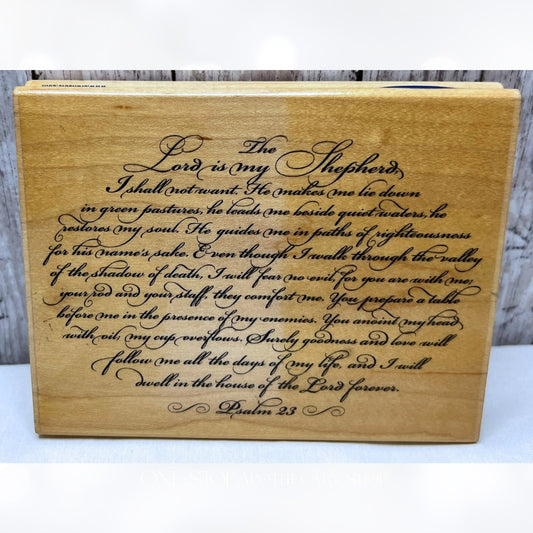 The
Lord is my Shepherd,
I shall not want. He makes me lie down
in green pastures, he leads me beside quiet waters, he
restores my soul. He guides me in paths of righteousness
for his name's sake. Even though I walk through the valley
of the shadow of death, I will fear no evil, for you are with me;
your rod and your staff, they comfort me. You prepare a table
before me in the presence of my enemies. You anoint my head
with oil; my cup overflows. Surely goodness and love will
follow me all the days of my life, and I will
dwell in the house of the Lord forever.
Psalm 23